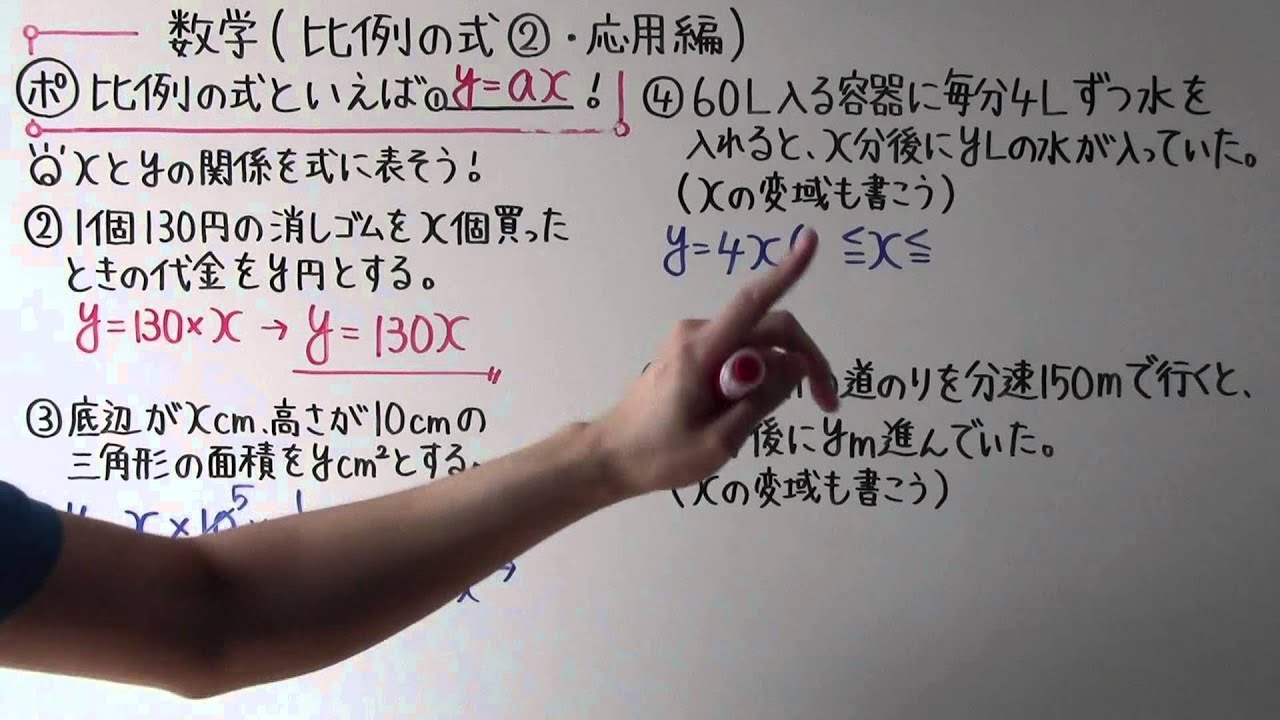 数学(比例の式②・応用編)
ポ 比例の式といえば①y=ax!
xとyの関係を式に表そう!
② 1個130円の消しゴムをx個買った
ときの代金をy円とする。
y=130×x → y=130x
③底辺がxcm、高さが10cmの
三角形の面積をycm²とする。
x×10 5
④60L入る容器に毎分4Lずつ水を
入れると、x分後にyLの水が入っていた。
(xの変域も書こう)
y=4x( ≦x≦
道のりを分速150mで行くと、
後にym進んでいた。
(xの変域も書こう)